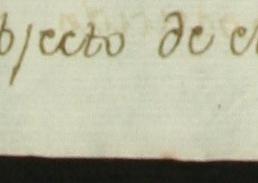 bjecto de e